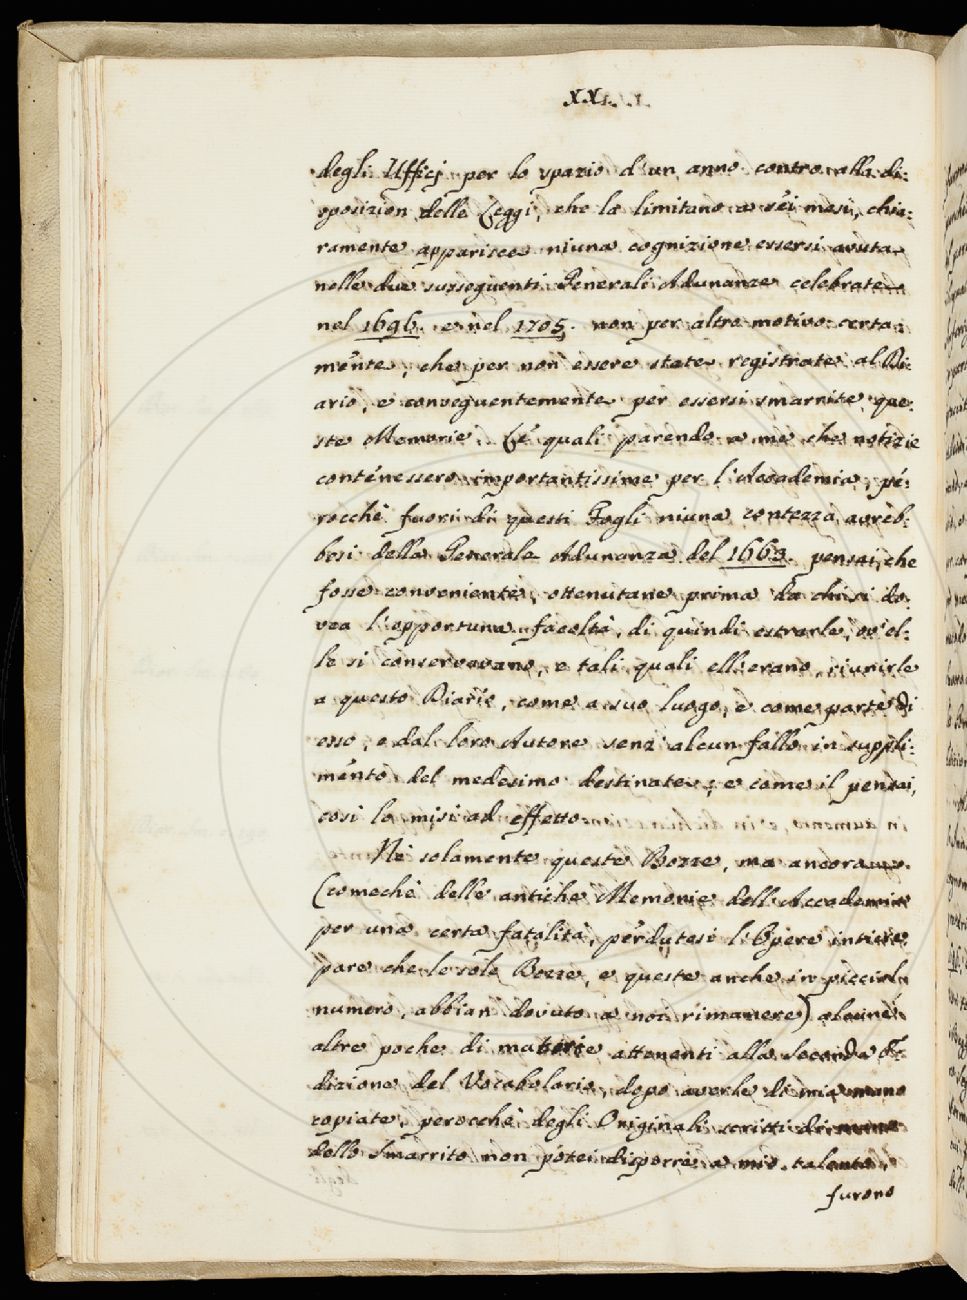 degli Ufficj per lo spazio d'un anno contro alla di:
sposizion delle Leggi, che la limitano a sei mesi, chia:
ramente apparisce niuna cognizione essersi avuta
nelle due susseguenti Generali Adunanze celebrate
nel 1696. e nel 1705. non per altro motivo certa:
mente, che per non essere state registrate al Di:
ario, e conseguentemente per essersi smarrite que:
ste Memorie. Le quali parendo a me che notizie
contenessero importantissime per l'Accademia, pe:
rocchè fuori di questi Fogli niuna contezza avreb:
besi della Generale Adunanza del 1663. pensai, che
fosse conveniente, ottenutane prima da chi si do:
vea l'opportuna facoltà, di quindi estrarle, ov'el:
le si conservavano, e tali quali ell'erano, riunirle
a questo Diario, come a suo luogo, e come parte di
esso, e dal loro Autore senz'alcun fallo in suppli:
mento del medesimo destinate; e come il pensai,
così lo misi ad effetto.
Nè solamente queste Bozze, ma ancora
(comechè delle antiche Memorie dell'Accademia
per una certa fatalità, perdutesi l'Opere intiere,
pare che le sole Bozze, e queste anche in picciol
numero, abbian dovuto a noi rimanere) alcune
altre poche di materie attenenti alla Seconda E:
dizione del Vocabolario, dopo averle di mia mano
copiate, perocchè degli Originali scritti di mano
dello Smarrito non potei disporre a mio talento,
furono